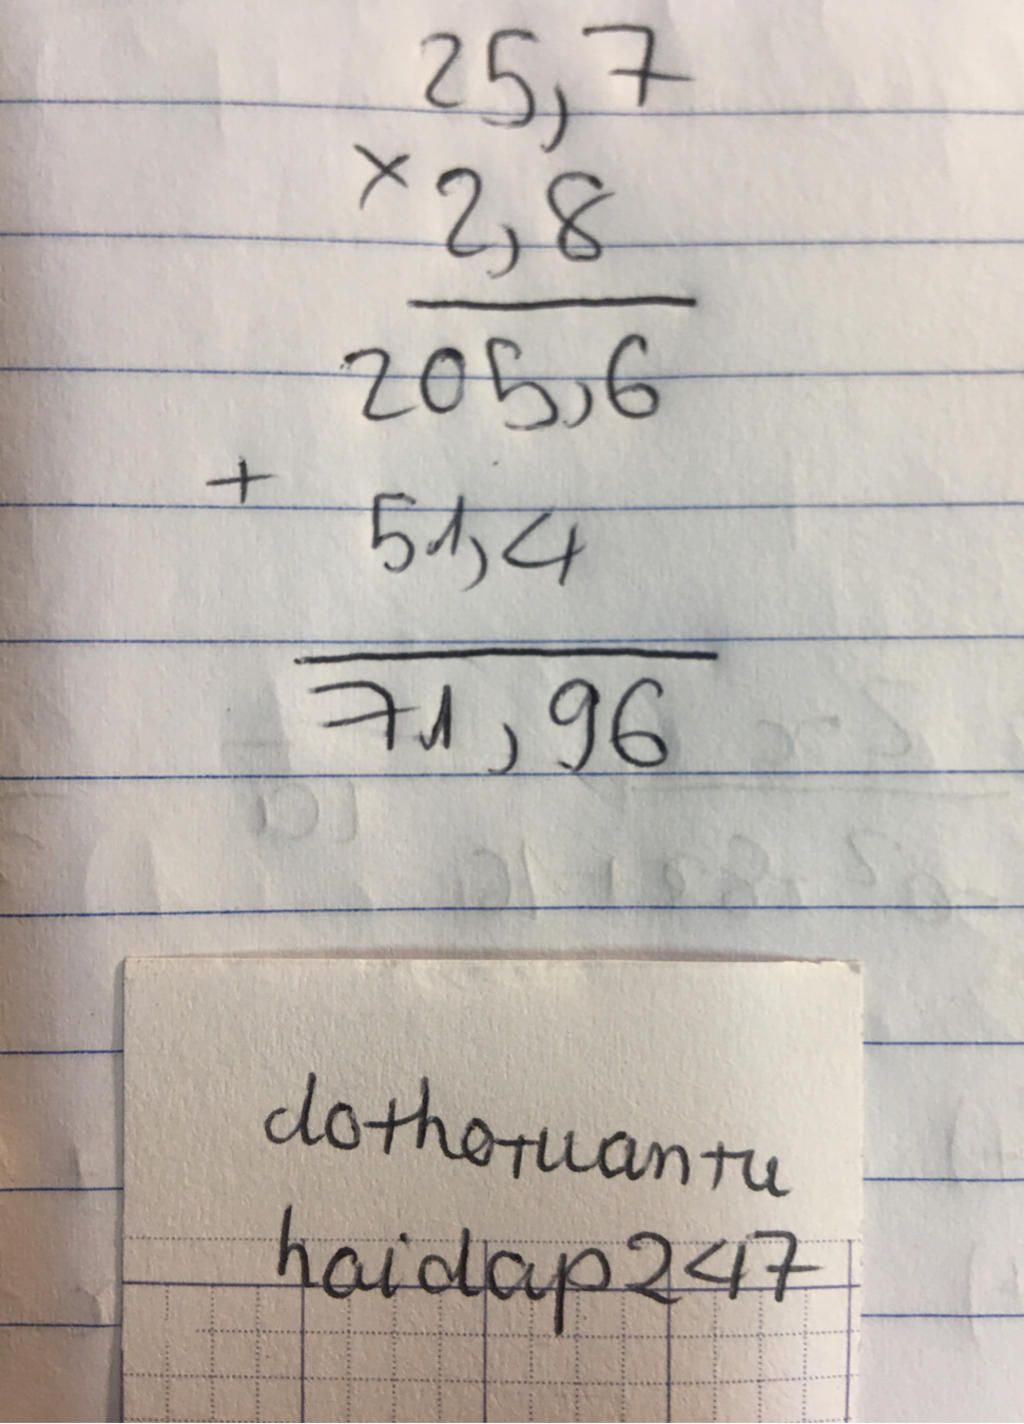 25,7
× 2,8
205,6
+
51,4
71,96
dothotuantu
hoidap247